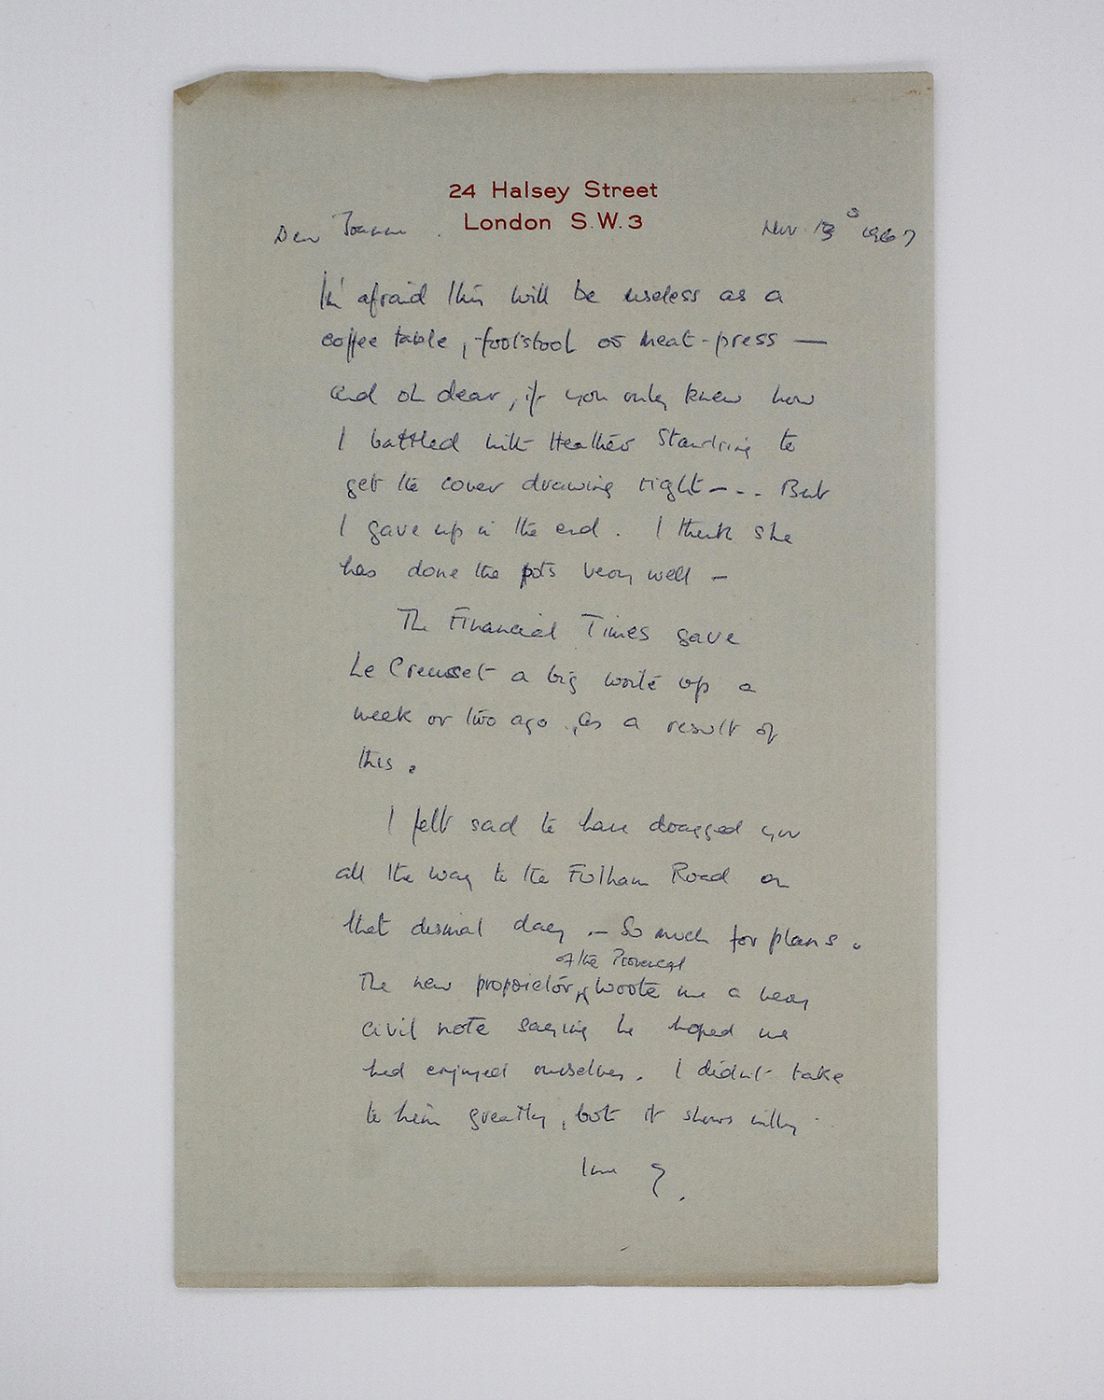 24 Halsey Street
London S.W.3
Dear Joanna. Nov 1967
I'm afraid this will be useless as a
coffee table, footstool or meat-press —
and oh dear, if you only knew how
I battled with Heather Standring to
get the cover drawing right - - . But
I gave up in the end. I think she
has done the pots very well -
The Financial Times gave
Le Creuset a big write up a
week or two ago, as a result of
this.
I felt sad to have dragged you
all the way to the Fulham Road on
that dismal day. - So much for plans.
of the Provencal
The new proprietor, wrote me a very
civil note saying he hoped we
had enjoyed ourselves. I didn't take
to him greatly, but it shows
love